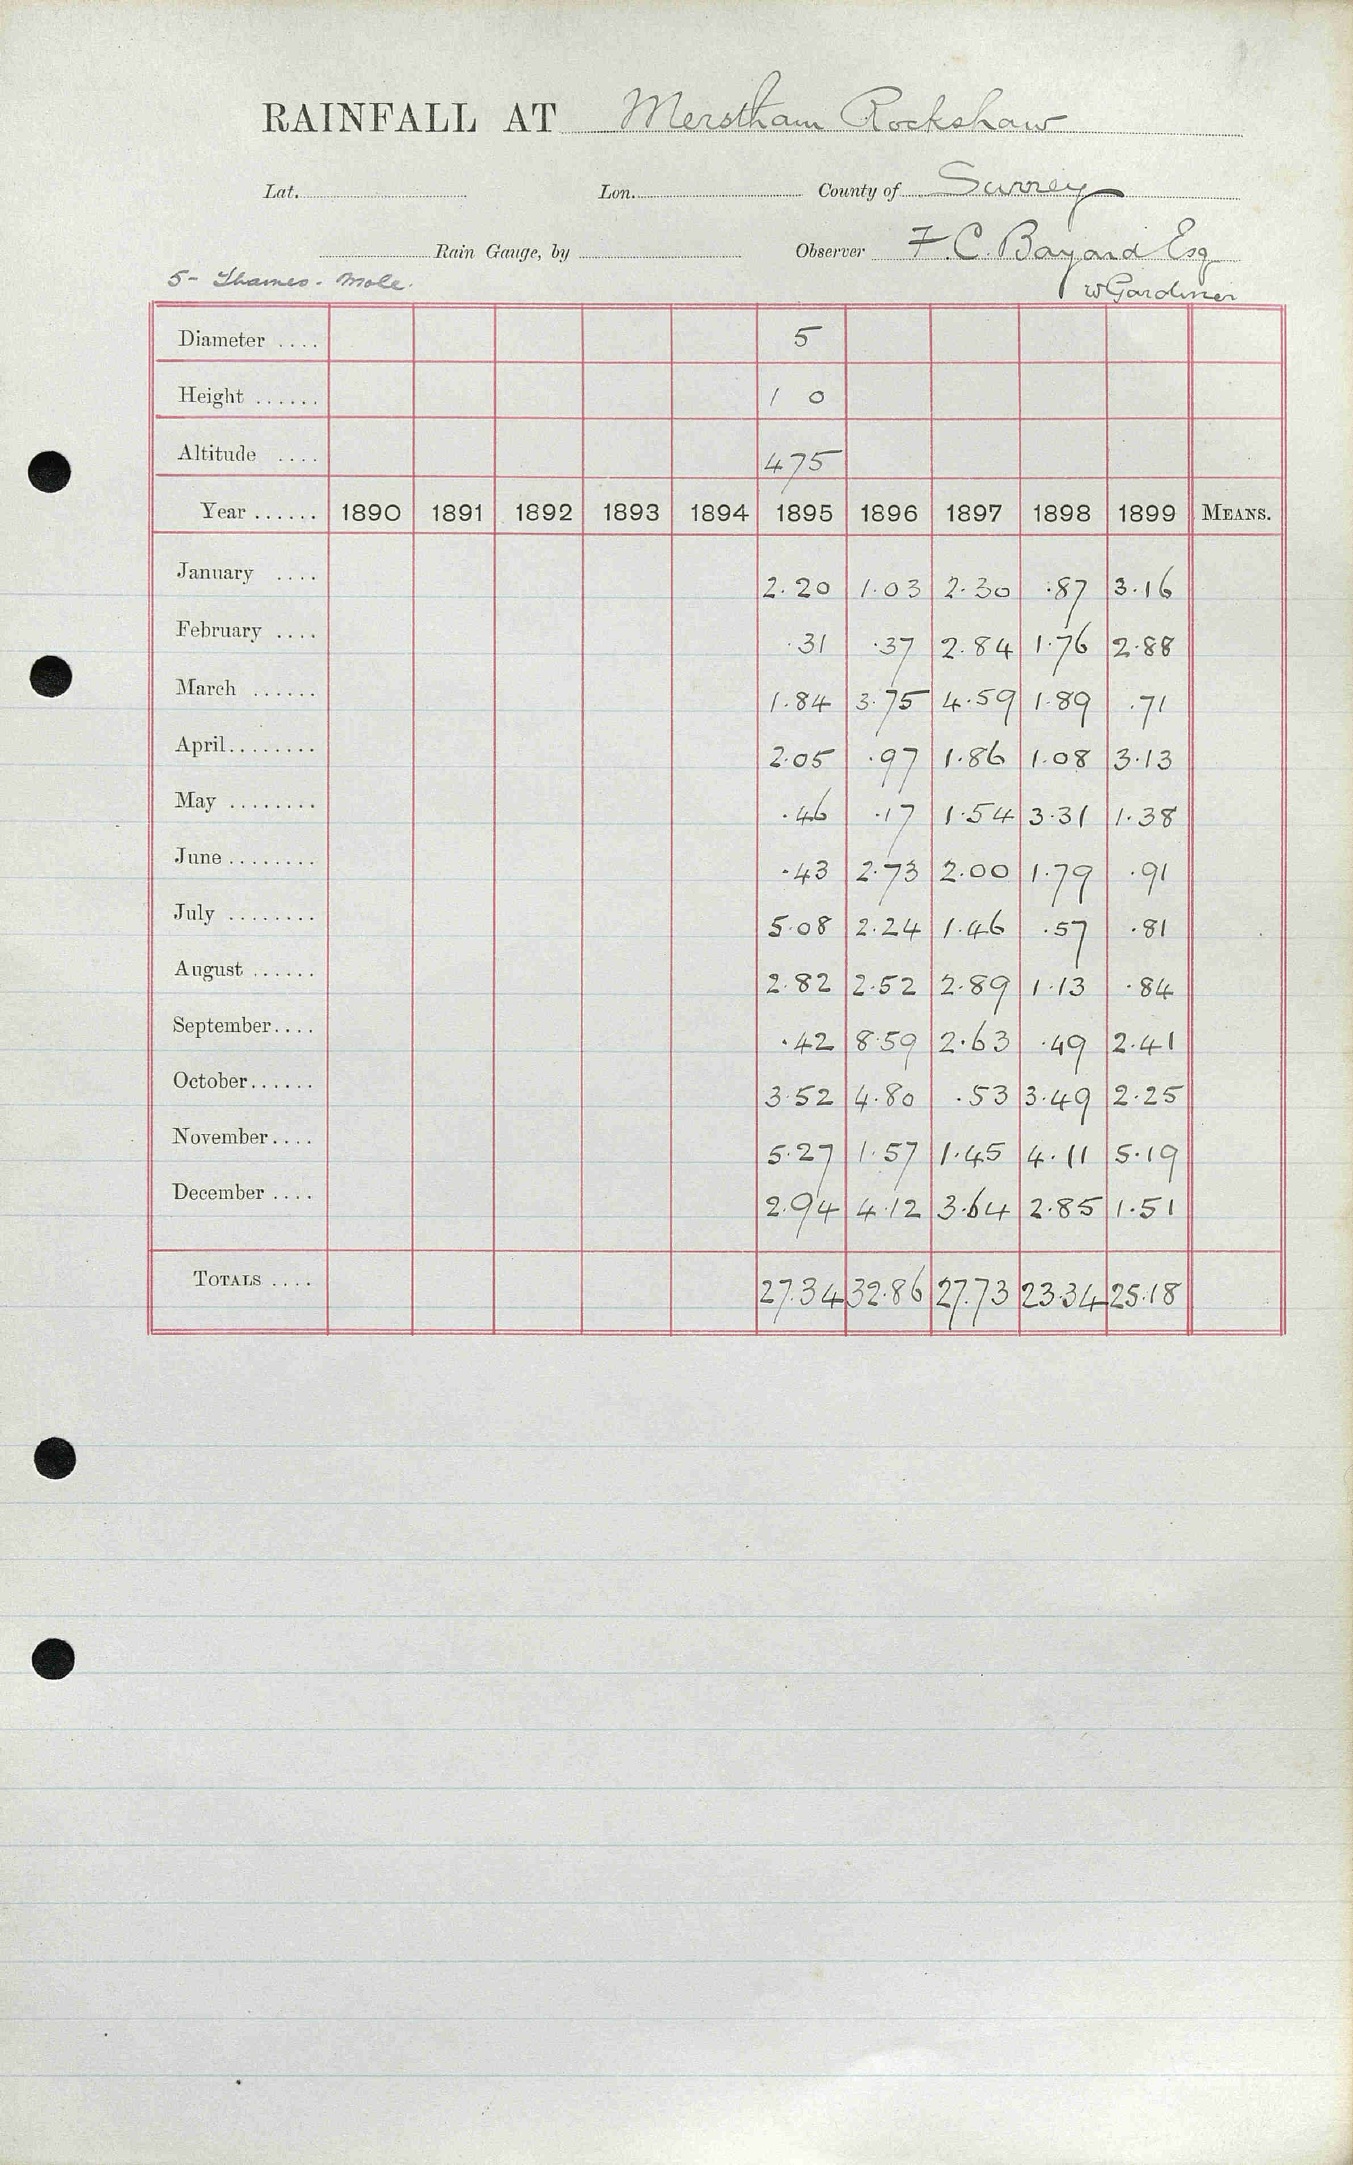 RAINFALL AT Merstham Rockshaw
Lat. Lon. County of Surrey
Rain Gauge, by Observer F. C. Bayard Esq
5- Thames. Mole. W Gardiner
Diameter .... 5
Height ...... 1 0
Altitude .... 475
Year ...... 1890 1891 1892 1893 1894 1895 1896 1897 1898 1899 MEANS.
January .... 2.20 1.03 2.30 .87 3.16
February .... .31 .37 2.84 1.76 2.88
March ...... 1.84 3.75 4.59 1.89 .71
April........ 2.05 .97 1.86 1.08 3.13
May ........ .46 .17 1.54 3.31 1.38
June ........ .43 2.73 2.00 1.79 .91
July ........ 5.08 2.24 1.46 .57 .81
August ...... 2.82 2.52 2.89 1.13 .84
September.... .42 8.59 2.63 .49 2.41
October...... 3.52 4.80 .53 3.49 2.25
November.... 5.27 1.57 1.45 4.11 5.19
December .... 2.94 4.12 3.64 2.85 1.51
TOTALS .... 27.34 32.86 27.73 23.34 25.18